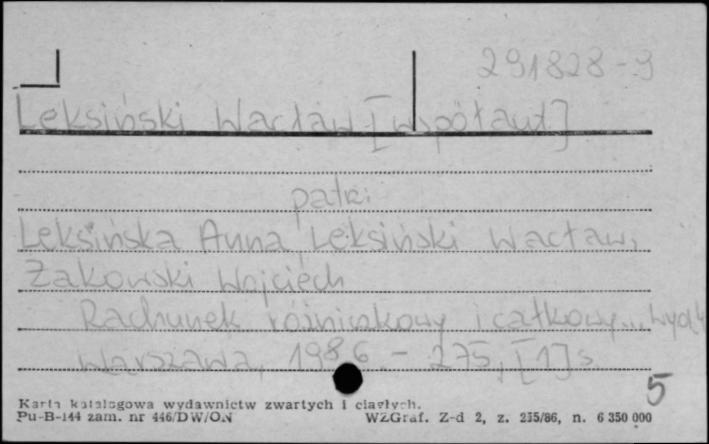 291828-9
Leksiński Wacław [współaut]
patrz:
Leksińska Anna, Leksiński Wacław,
Żakowski Wojciech
Rachunek różniczkowy i całkowy... Wyd 4
Warszawa, 1986. - 275, [1] s.
5
Karta katalogowa wydawnictw zwartych i ciągłych.
Pu-B-144 zam. nr 446/DW/ON WZGraf. Z-d 2, z. 235/86, n. 6 350 000